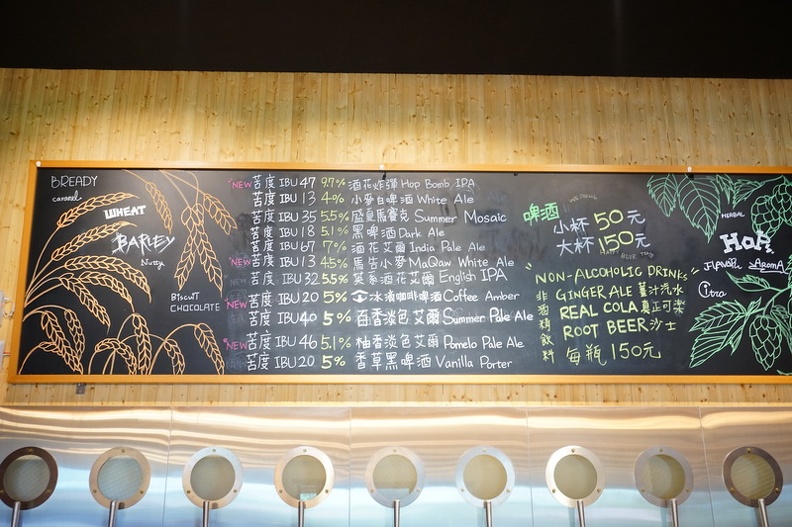 BREADY
caramel
WHEAT
BARLEY
Nutty
BISCUIT
CHOCOLATE
NEW 苦度 IBU 47 9.7% 酒花炸彈 Hop Bomb IPA
苦度 IBU 13 4% 小麥白啤酒 White Ale
苦度 IBU 35 5.5% 盛夏馬賽克 Summer Mosaic
苦度 IBU 18 5.1% 黑啤酒 Dark Ale
苦度 IBU 67 7% 酒花艾爾 India Pale Ale
NEW 苦度 IBU 13 4.5% 馬告小麥 MaQaw White Ale
苦度 IBU 32 5.5% 英系酒花艾爾 English IPA
NEW 苦度 IBU 20 5% 冰滴咖啡啤酒 Coffee Amber
苦度 IBU 40 5% 百香淡色艾爾 Summer Pale Ale
NEW 苦度 IBU 46 5.1% 柚香淡色艾爾 Pomelo Pale Ale
苦度 IBU 20 5% 香草黑啤酒 Vanilla Porter
啤酒
小杯 50元
大杯 150元
"NON-ALCOHOLIC DRINKS"
非酒精飲料
GINGER ALE 薑汁汽水
REAL COLA 真正可樂
ROOT BEER 沙士
每瓶 150元
HERBAL
HOP
FLAVOR AROMA
Citra